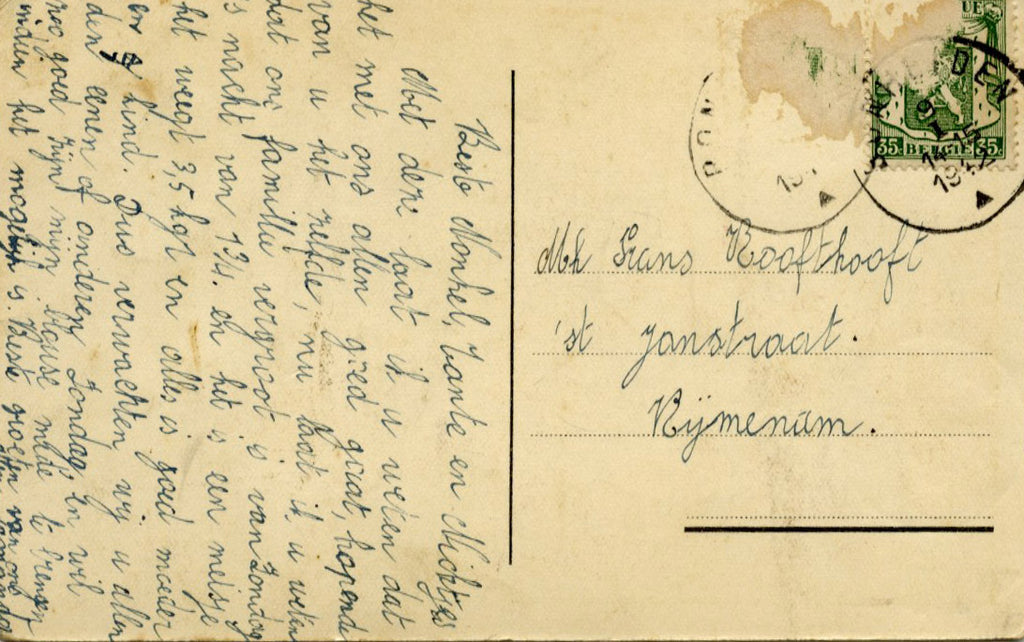 Beste Nonkel, Tante en Nichtjes
Met deze laat ik u weten dat
het met ons allen goed gaat, hopende
van u het zelfde, nu laat ik u weten
dat ons famillie vergroot is van Zondag
's nacht van 1¾. en het is een meisje
het weegt 3,5 kgt en alles is goed moeder
en kind. Dus verwachten wij u allen
den eenen of anderen Zondag En wil
zoo goed zijn mijn blouse mede te brengen
indien het mogelijk is. Beste groeten van ons
allen
Mh Frans Roofthooft
'st Janstraat.
Rijmenam.
35c BELGIE 35c
9
I
14-15
194